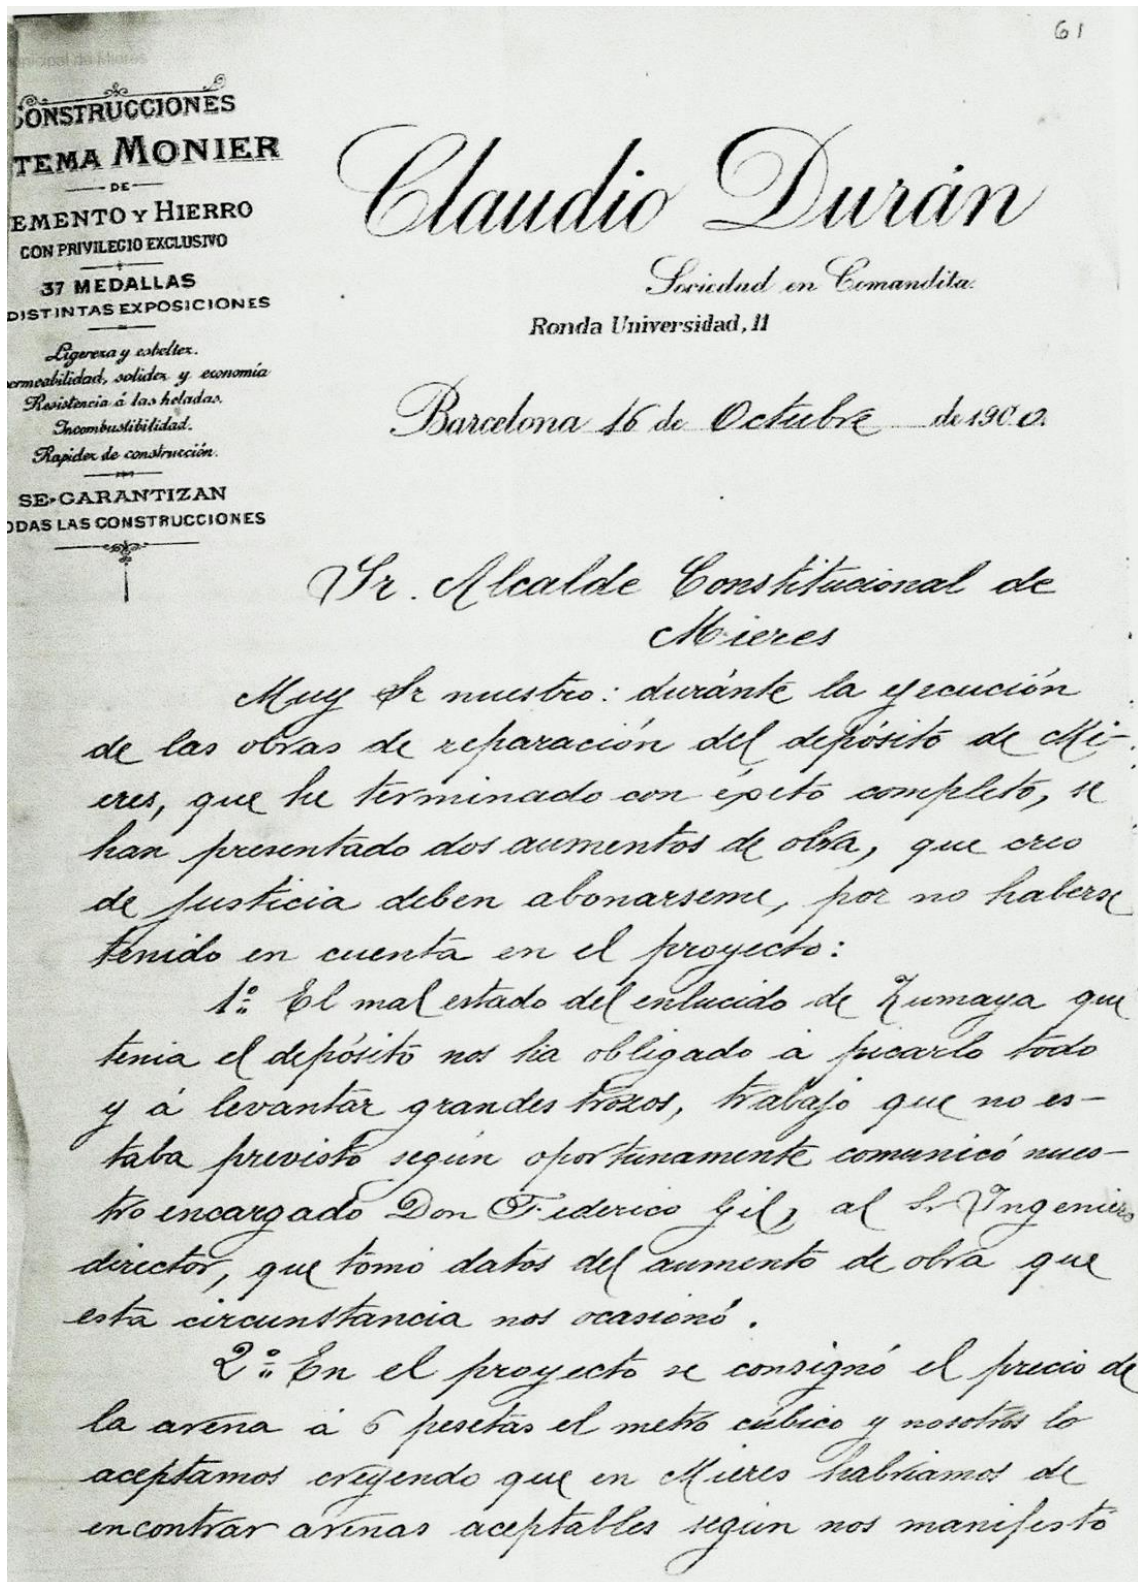 61
nicipal de Mieres
CONSTRUCCIONES
TEMA MONIER
DE
EMENTO Y HIERRO
CON PRIVILEGIO EXCLUSIVO
37 MEDALLAS
DISTINTAS EXPOSICIONES
Ligereza y esbeltez.
permeabilidad, solidez y economía
Resistencia á las heladas.
Incombustibilidad.
Rapidez de construcción.
SE GARANTIZAN
ODAS LAS CONSTRUCCIONES
Claudio Durán
Sociedad en Comandita.
Ronda Universidad, 11
Barcelona 16 de Octubre de 1900.
Sr. Alcalde Constitucional de
Mieres
Muy Sr nuestro: duránte la ejecución
de las obras de reparación del depósito de Mi-
eres, que he terminado con éxito completo, se
han presentado dos aumentos de obra, que creo
de justicia deben abonarseme, por no haberse
tenido en cuenta en el proyecto:
1º El mal estado del enlucido de Zumaya que
tenia el depósito nos ha obligado á picarlo todo
y á levantar grandes trozos, trabajo que no es-
taba previsto según oportunamente comunicó nues-
tro encargado Don Federico Gil, al Sr Ingeniero
director, que tomó datos del aumento de obra que
esta circunstancia nos ocasionó.
2º En el proyecto se consignó el precio de
la arena á 6 pesetas el metro cúbico y nosotros lo
aceptamos creyendo que en Mieres habriamos de
encontrar arenas aceptables según nos manifestó